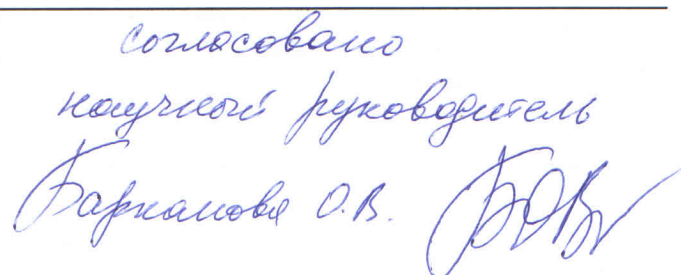 согласовано
научный руководитель
Барканова О.В. БОВ